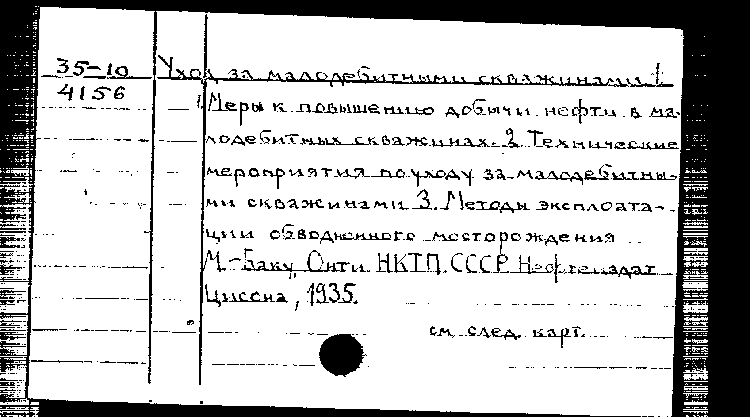 35-10
4156
Уход за малодебитными скважинами 1.
1. Меры к повышению добычи нефти в ма-
лодебитных скважинах. 2 Технические
мероприятия по уходу за малодебитны-
ми скважинами 3. Методы эксплоата-
ции обводненного месторождения
М.-Баку, Онти НКТП СССР Нефтеиздат
1935.
см след. карт.